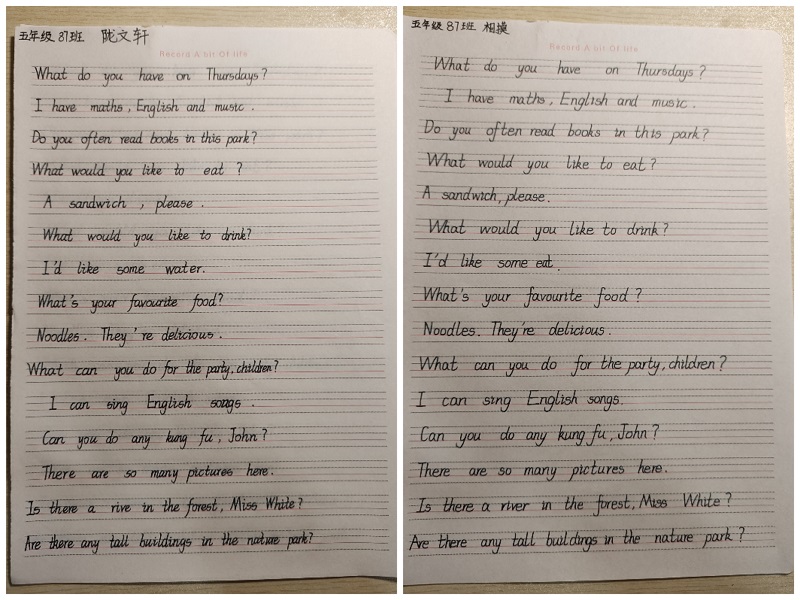 五年级 87班 陇文轩
Record A bit Of life
What do you have on Thursdays?
I have maths, English and music.
Do you often read books in this park?
What would you like to eat ?
A sandwich , please .
What would you like to drink?
I'd like some water.
What's your favourite food?
Noodles. They're delicious.
What can you do for the party, children?
I can sing English songs .
Can you do any kung fu, John?
There are so many pictures here.
Is there a rive in the forest, Miss White?
Are there any tall buildings in the nature park?
五年级 87班 相操
Record A bit Of life
What do you have on Thursdays?
I have maths, English and music.
Do you often read books in this park?
What would you like to eat?
A sandwich, please.
What would you like to drink?
I'd like some eat.
What's your favourite food?
Noodles. They're delicious.
What can you do for the party, children?
I can sing English songs.
Can you do any kung fu, John?
There are so many pictures here.
Is there a river in the forest, Miss White?
Are there any tall buildings in the nature park?